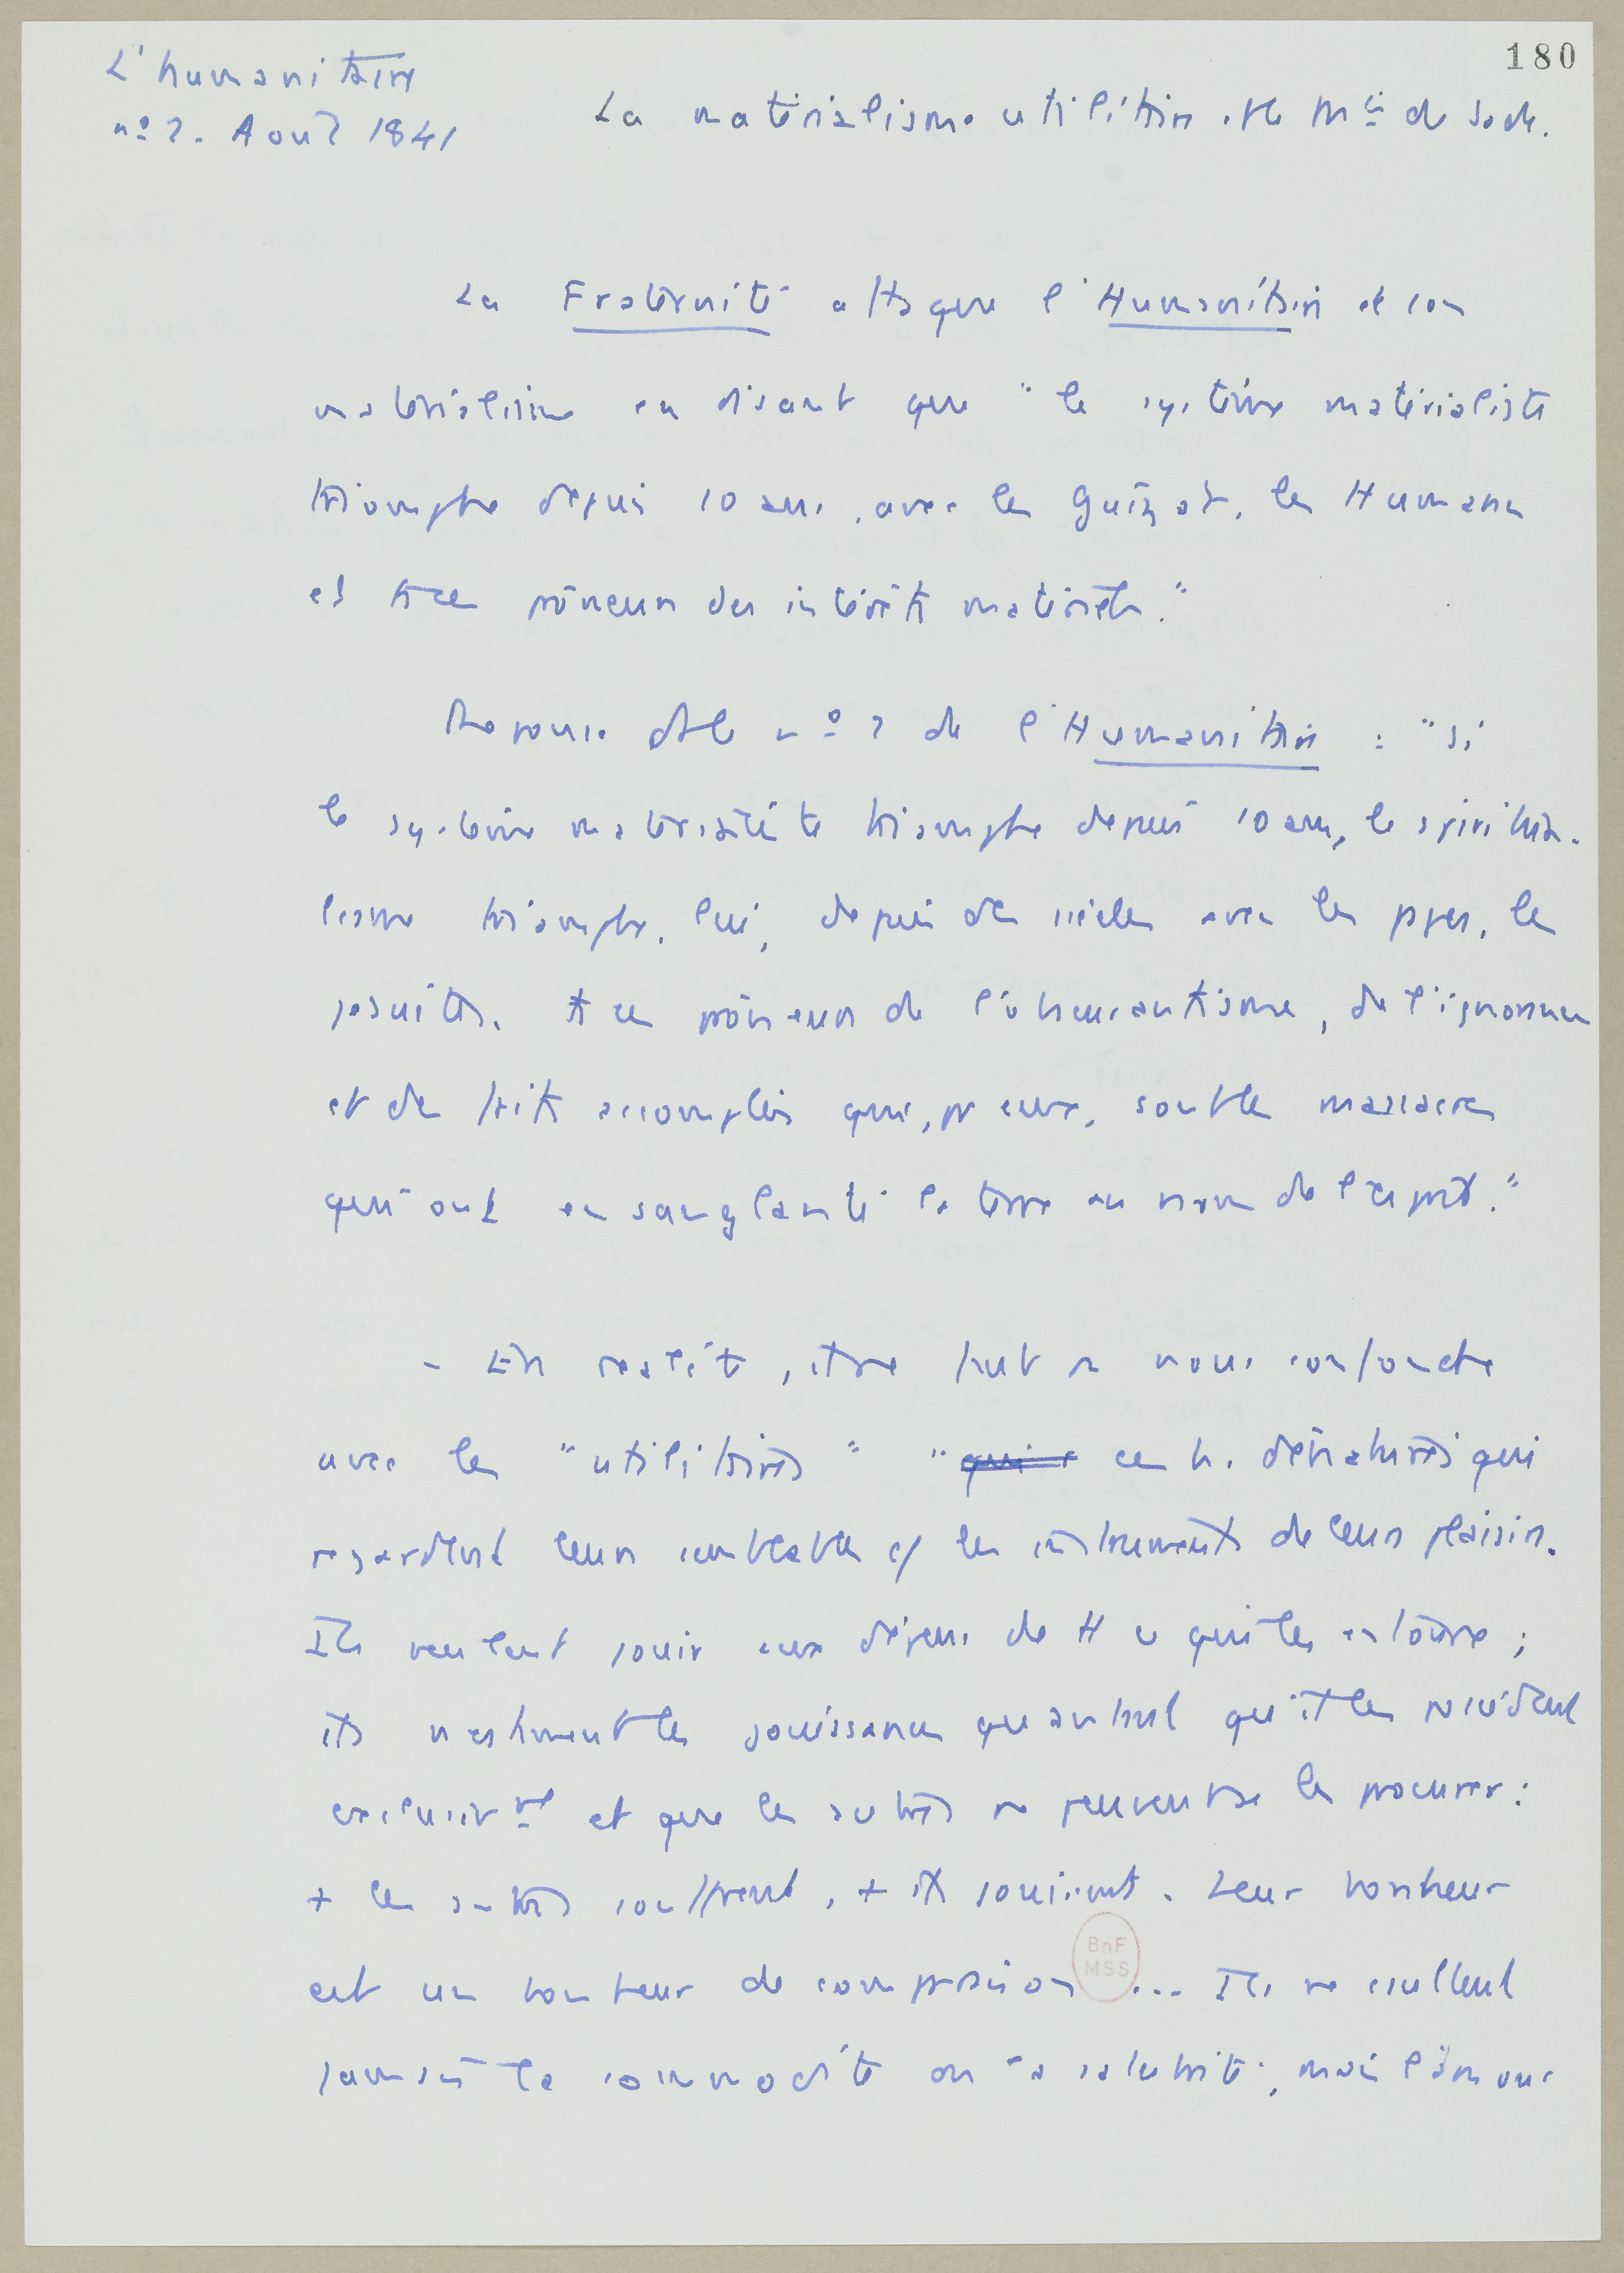 180
L'humanitaire
n° 2. Aout 1841
La matérialisme utilitaire et le Mis de Sade.
La Fraternité attaque l'Humanitaire et son
matérialisme en disant que "le système matérialiste
triomphe depuis 10 ans, avec les Guizot, les Humann
et ts ces prôneurs des intérêts matériels."
Réponse ds le n° 2 de l'Humanitaire : "si
le système matérialiste triomphe depuis 10 ans, le spiritua-
lisme triomphe, lui, depuis des siècles avec les papes, les
jésuites, ts ces prôneurs de l'obscurantisme, de l'ignorance
et des faits accomplis qui, pr eux, sont les massacres
qui ont ensanglanté la terre au nom de l'esprit."
- En réalité, il ne faut ps nous confondre
avec les "utilitaires" "qui ces h. dénaturés qui
regardent leurs semblables c/ les instruments de leurs plaisirs.
Ils veulent jouir aux dépens de tt ce qui les entoure ;
ils n'estiment les jouissances qu'autant qu'ils les possèdent
exclusivmt et que les autres ne peuvent se les procurer :
+ les autres souffrent, + ils jouissent. Leur bonheur
est un bonheur de comparaison ... Ils ne consultent
jamais la commodité ou la salubrité, mais l'amour
BnF
MSS